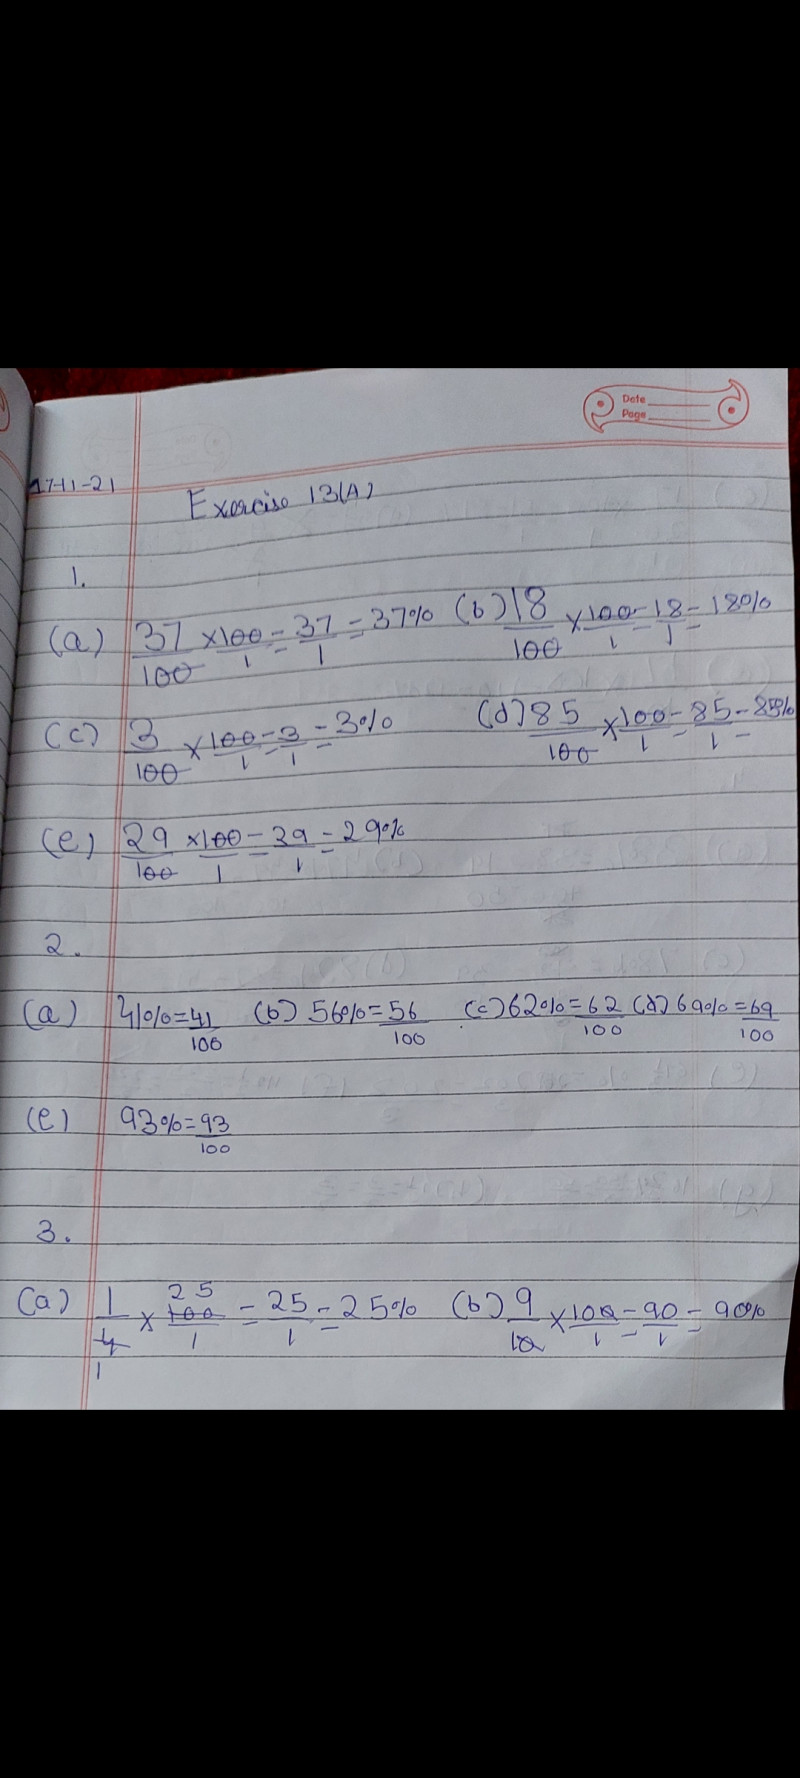 Date
Page
17-11-21
Exercise 13(A)
1.
(a) 37/100 × 100/1 = 37/1 = 37% (b) 18/100 × 100/1 = 18/1 = 18%
(c) 3/100 × 100/1 = 3/1 = 3% (d) 85/100 × 100/1 = 85/1 = 85%
(e) 29/100 × 100/1 = 39/1 = 29%
2.
(a) 41% = 41/100 (b) 56% = 56/100 (c) 62% = 62/100 (d) 69% = 69/100
(e) 93% = 93/100
3.
25
(a) 1/4 × 100/1 = 25/1 = 25% (b) 9/10 × 100/1 = 90/1 = 90%
1